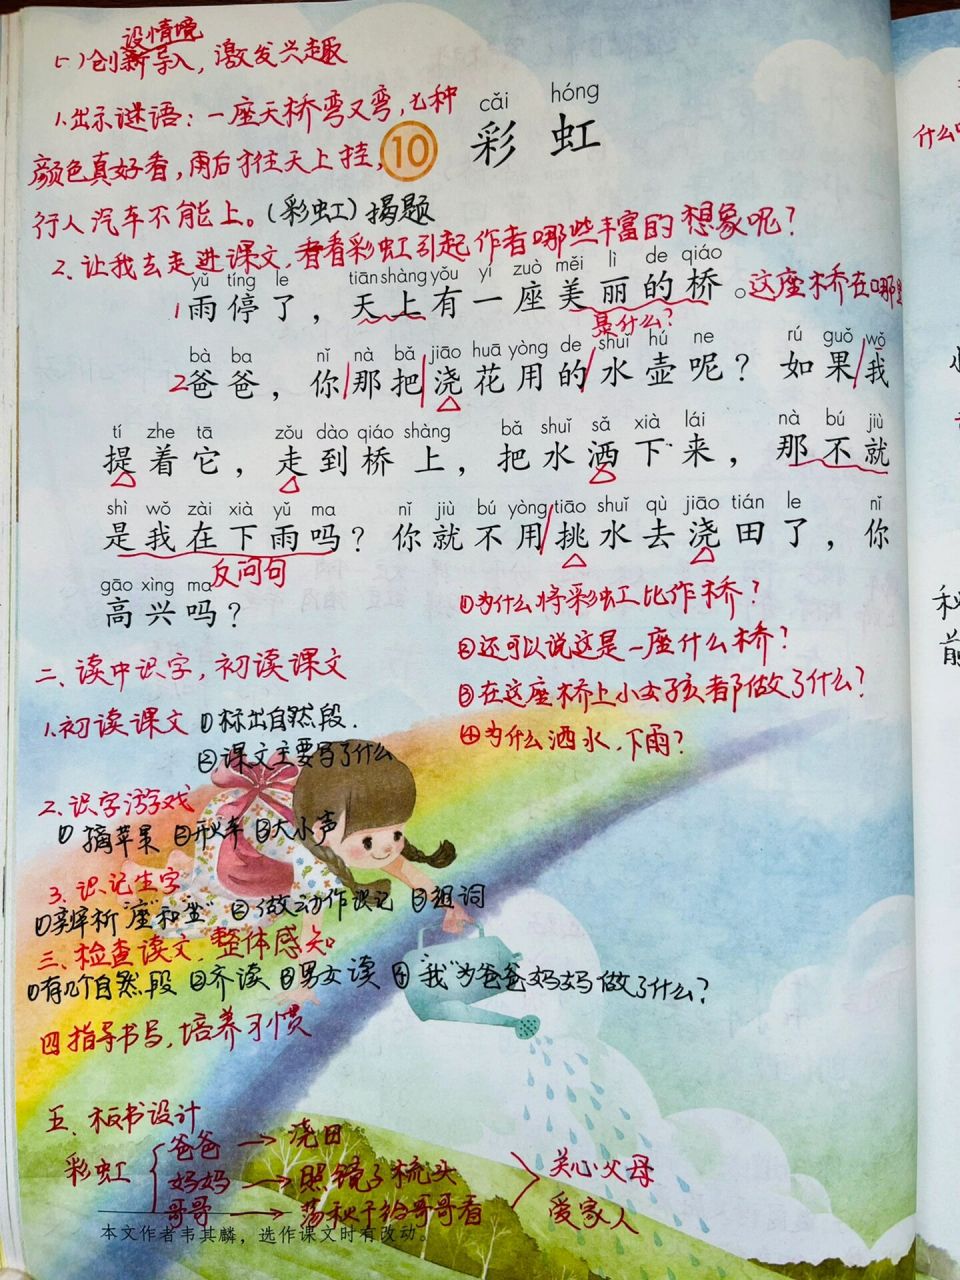 设情境
(一)创新导入,激发兴趣
1.出示谜语:一座天桥弯又弯,七种
颜色真好看,雨后才往天上挂,
行人汽车不能上。(彩虹)揭题
cǎi hóng
10 彩虹
2.让我去走进课文,看看彩虹引起作者哪些丰富的想象呢?
yǔ tíng le tiān shàng yǒu yí zuò měi lì de qiáo
1雨停了,天上有一座美丽的桥。这座桥在哪里
是什么?
bà ba nǐ nà bǎ jiāo huā yòng de shuǐ hú ne rú guǒ wǒ
2爸爸,你那把浇花用的水壶呢?如果我
tí zhe tā zǒu dào qiáo shàng bǎ shuǐ sǎ xià lái nà bú jiù
提着它,走到桥上,把水洒下来,那不就
shì wǒ zài xià yǔ ma nǐ jiù bú yòng tiāo shuǐ qù jiāo tián le nǐ
是我在下雨吗?你就不用挑水去浇田了,你
反问句
gāo xìng ma
高兴吗?
①为什么将彩虹比作桥?
②还可以说这是一座什么桥?
③在这座桥上小女孩都做了什么?
④为什么洒水,下雨?
二、读中识字,初读课文
1.初读课文 ①标出自然段.
②课文主要写了什么
2.识字游戏
① 摘苹果 ②开火车 ③大小声
3.识记生字
①辨析"座"和"坐" ②做动作识记 ③组词
三、检查读文,整体感知
①有几个自然段 ②齐读 ③男女读 ④"我"为爸爸妈妈做了什么?
四指导书写,培养习惯
五、板书设计
彩虹
爸爸 → 浇田
妈妈 → 照镜子梳头
哥哥 → 荡秋千给哥哥看
关心父母
爱家人
本文作者韦其麟,选作课文时有改动。
什么
秘
前